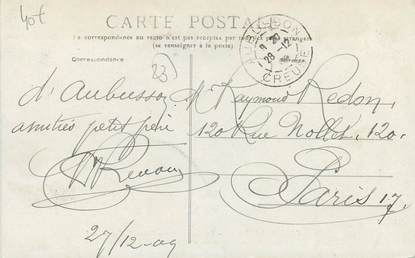 40f
CARTE POSTALE
La correspondance au recto n'est pas acceptée par tous les pays étrangers
(se renseigner à la poste)
Correspondance
Adresse
AUBUSSON
8 30
28 - 12
CREUSE
23
d'Aubusson
amitiés petit frère
27/12-09
Mr Raymond Redon,
120 Rue Nollet, 120.
Paris 17.